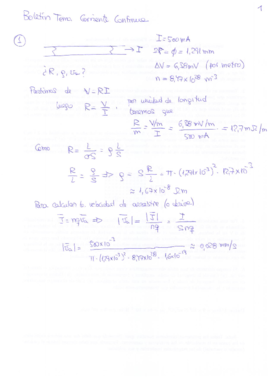 1
Boletín Tema Corriente Continua
① → I
I = 500 mA
2R = φ = 1,291 mm
ΔV = 6,38 mV (por metro)
n = 8,47 × 10²⁸ m⁻³
¿R, ρ, v?
Partimos de V = RI
luego R = V/I, por unidad de longitud tenemos que
R/m = V/m / I = 6,38 mV/m / 500 mA = 12,7 mΩ/m
Como R = L/σS = ρ L/S
R/L = ρ/S ⇒ ρ = S R/L = π · · 12,7 · 10⁻³
= 1,67 × 10⁻⁸ Ω m
Para calcular la velocidad de arrastre (o deriva)
⇒ = I / S n q
500 × 10⁻³
= 0,028 mm/s